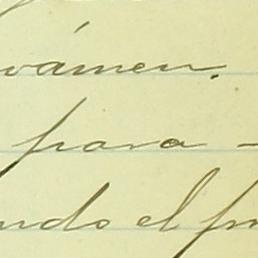 vámen.
para -
ndo el pr